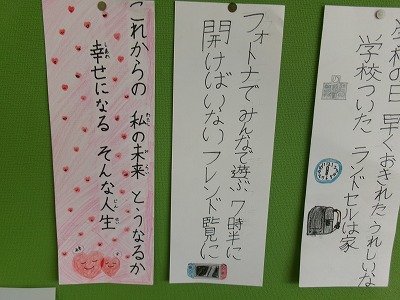 校の日 早くおきれた うれしいな
学校ついた ランドセルは家
フォトナで みんなで遊ぶ 7時半に
開けばいない フレンド覧に
これからの 私の未来 とうなるか
幸せになる そんな人生